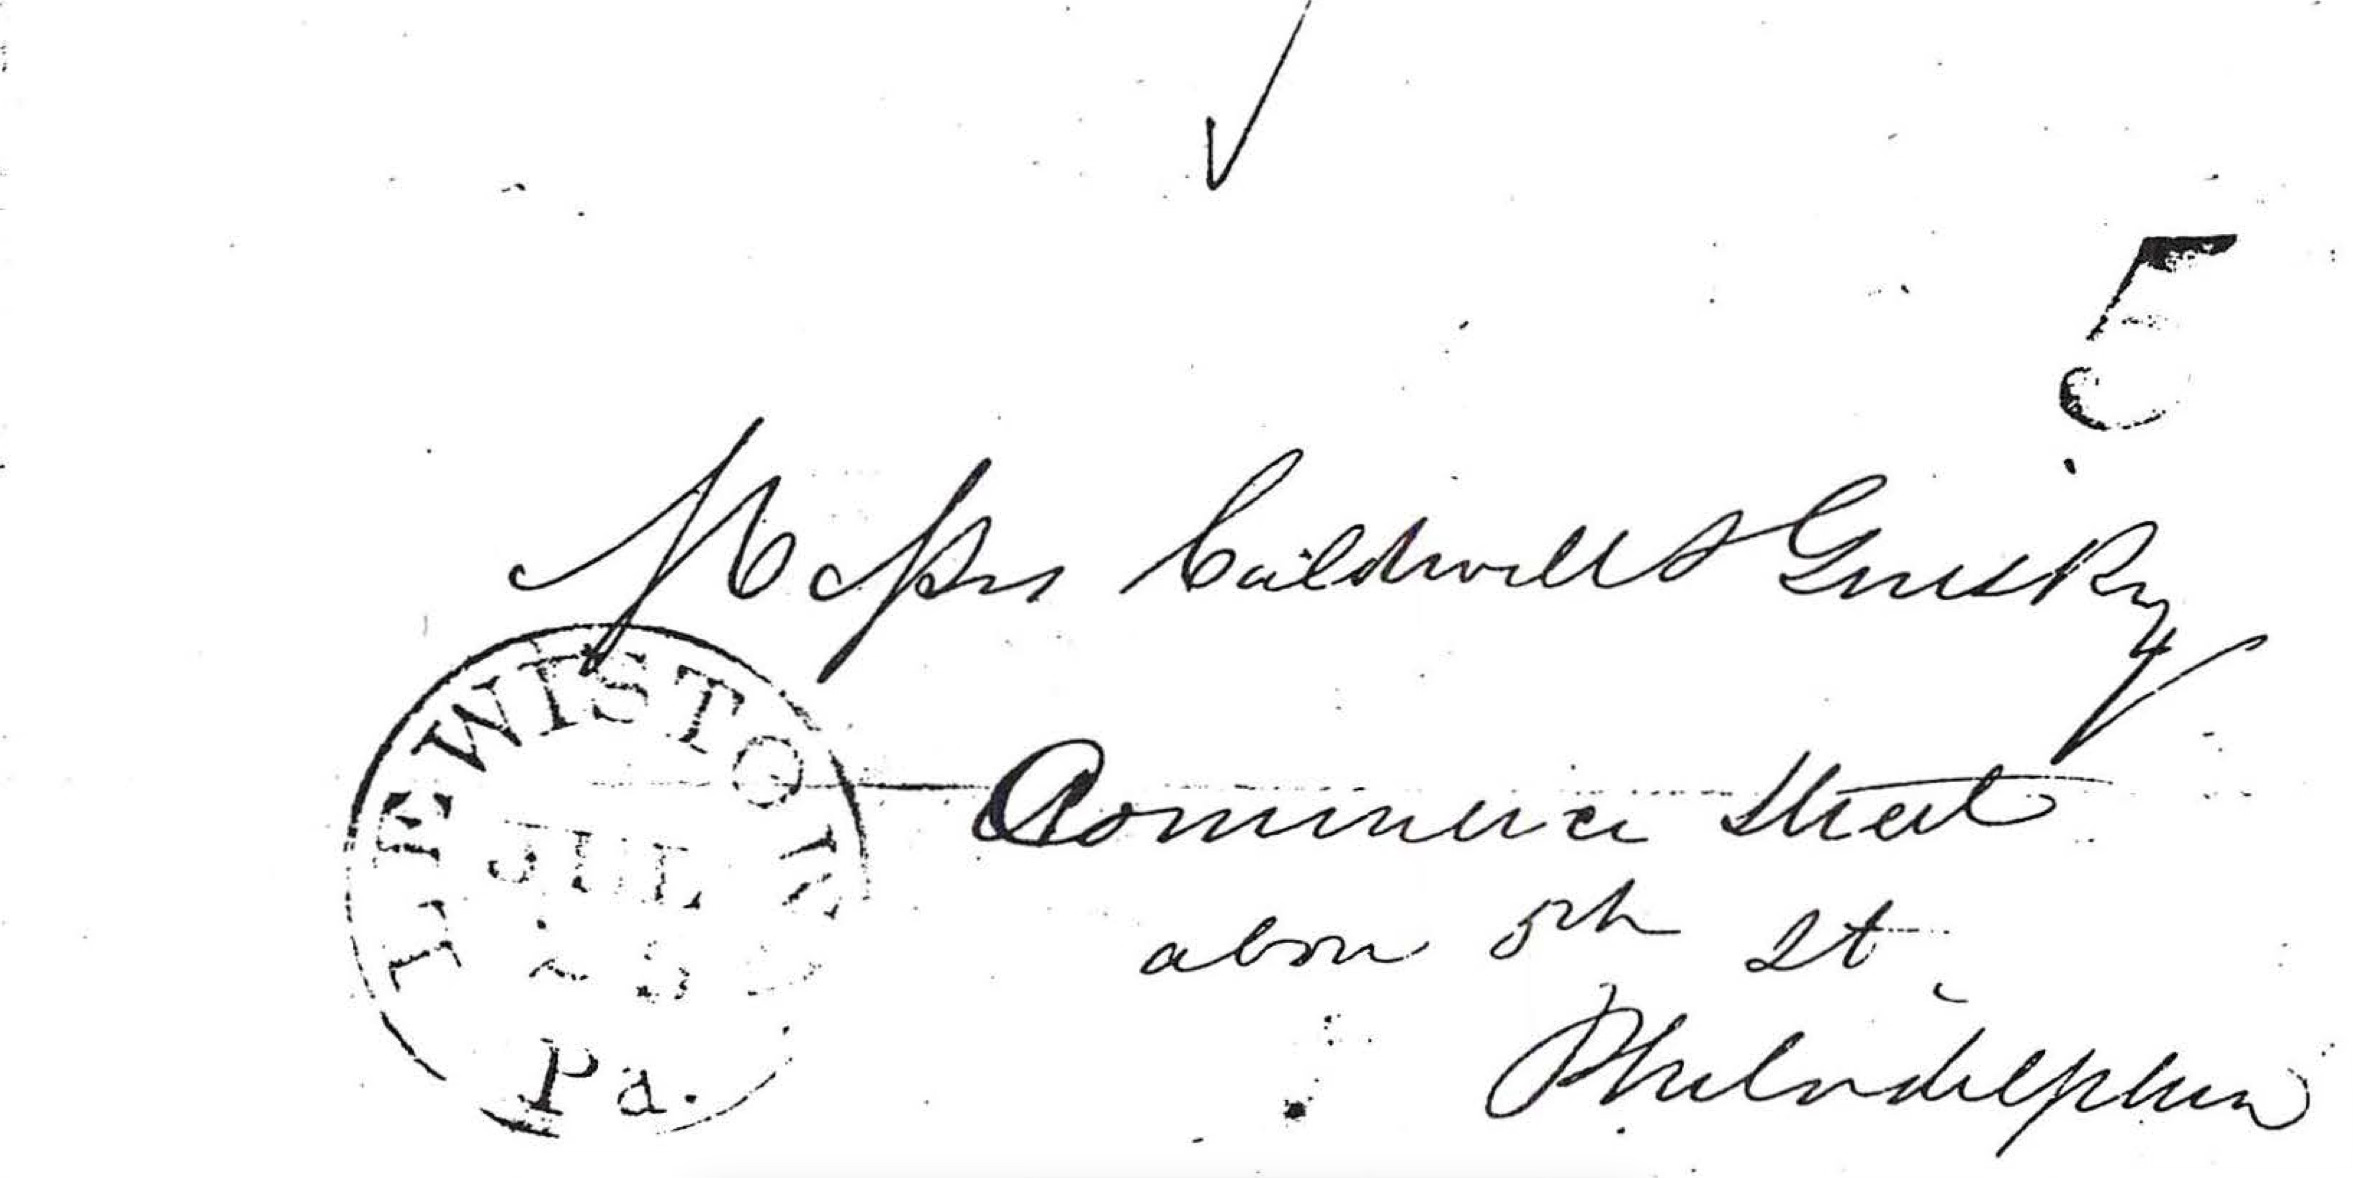 5
Messrs Caldwell &
Commerce Street
above 5th St
Philadelphia
LEWISTOWN
JUL
Pa.